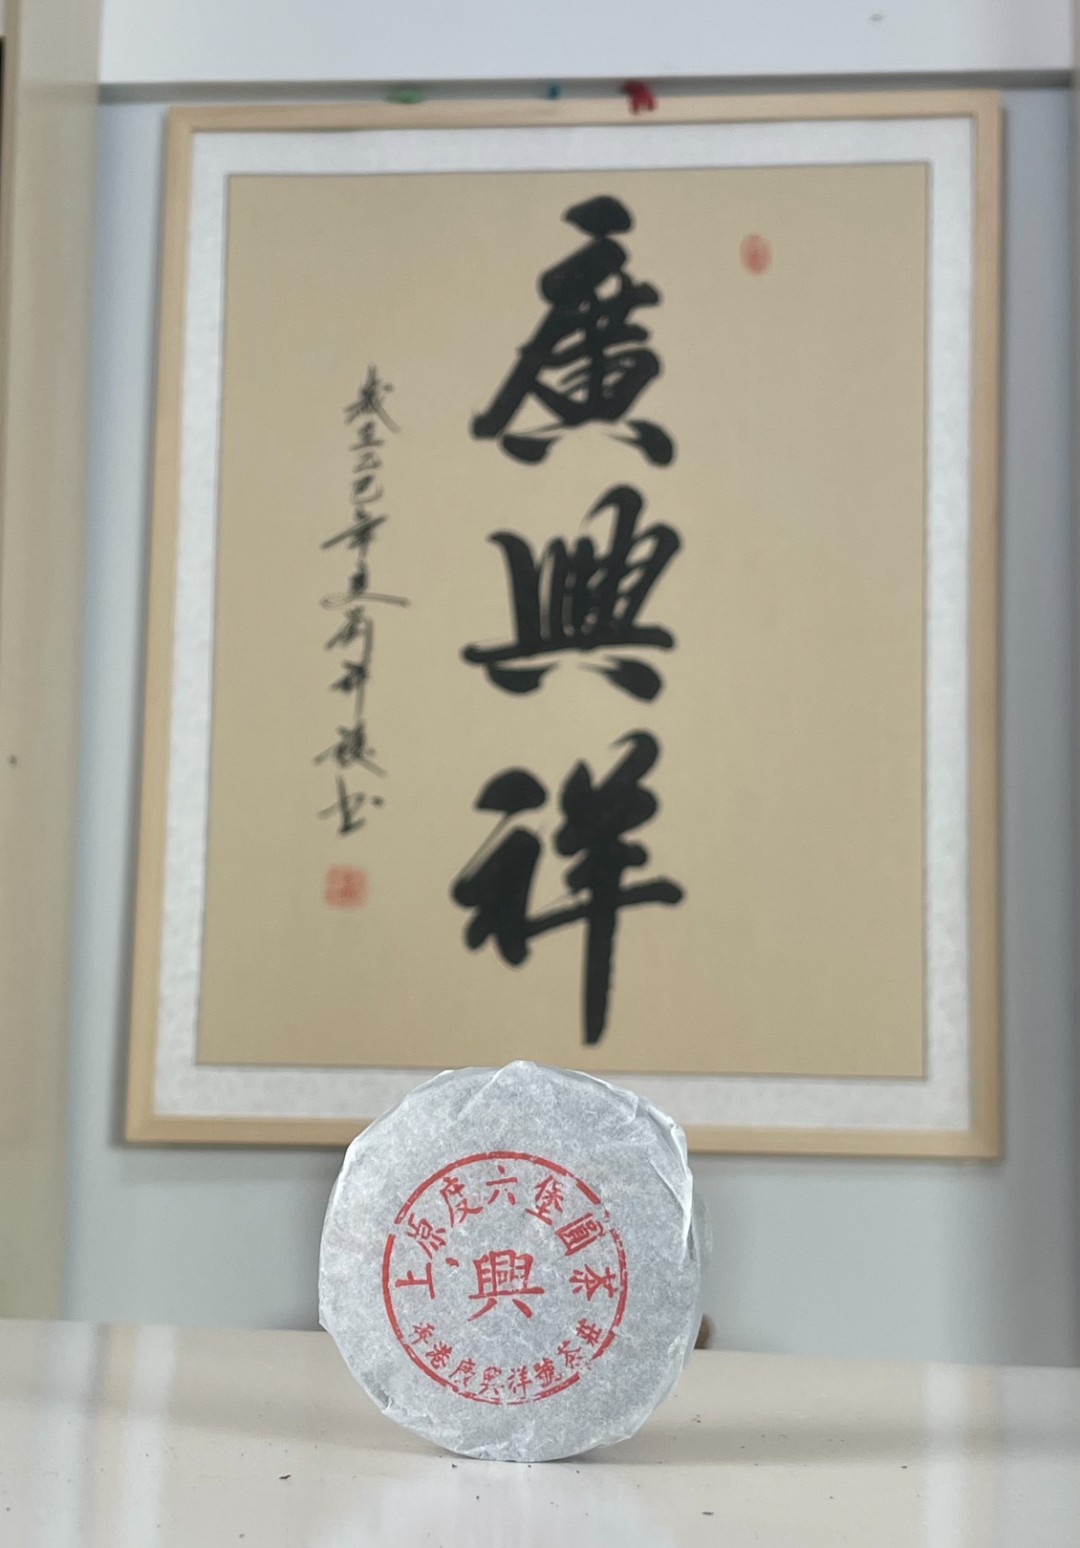 廣興祥
歲在乙巳年
上原度六堡圓茶
興
香港广興祥號茶莊